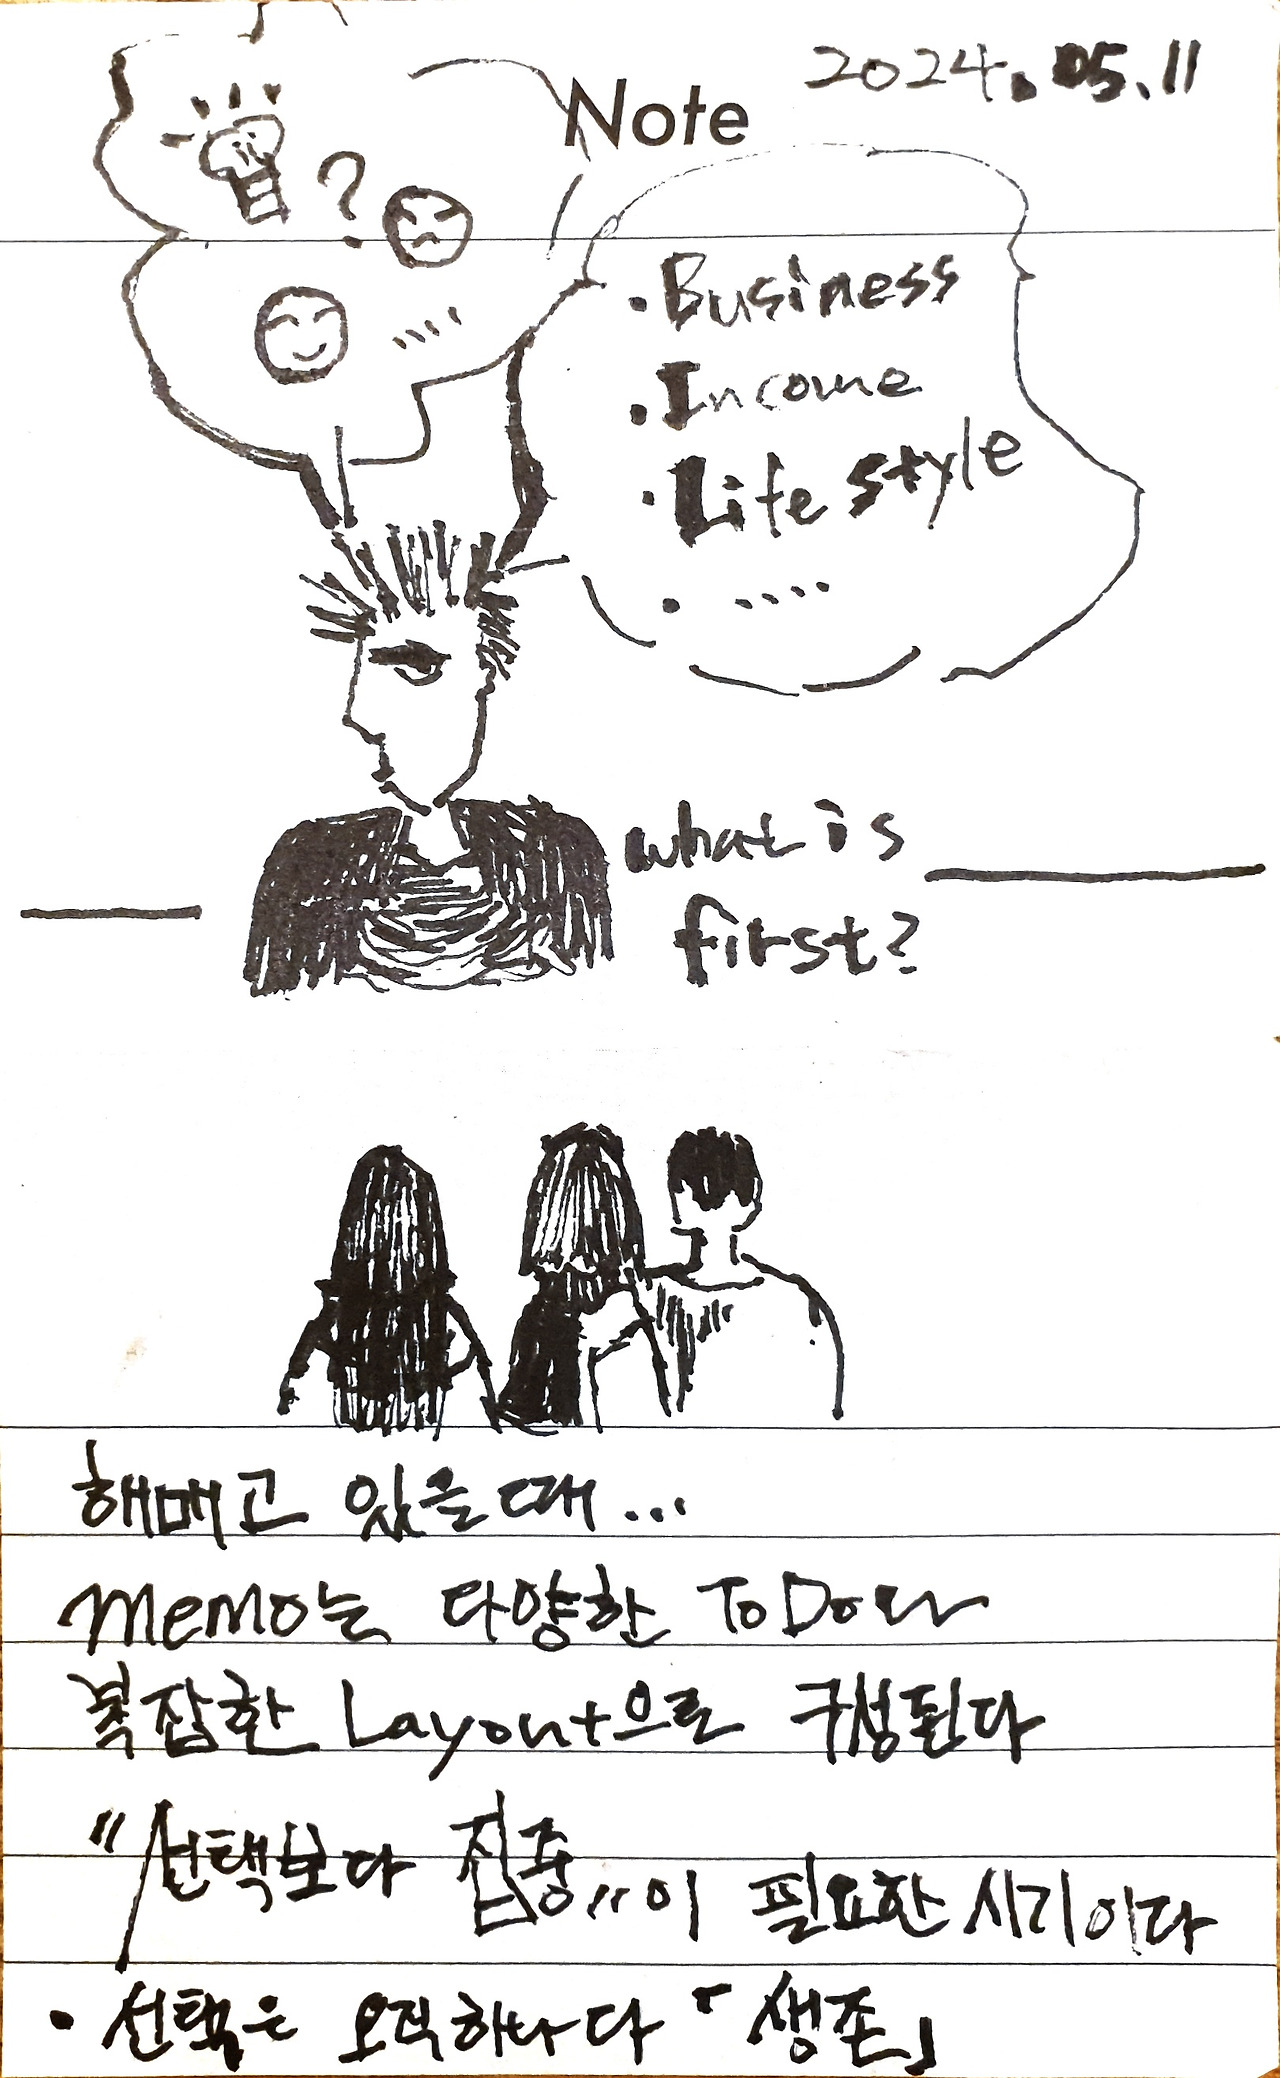 Note
2024.05.11
?
· Business
· Income
· Life style
· ....
what is
first?
해매고 있을때...
Memo는 다양한 ToDo와
복잡한 Layout으로 구성된다
"선택보다 집중"이 필요한 시기이다
· 선택은 오직하나다 「생존」